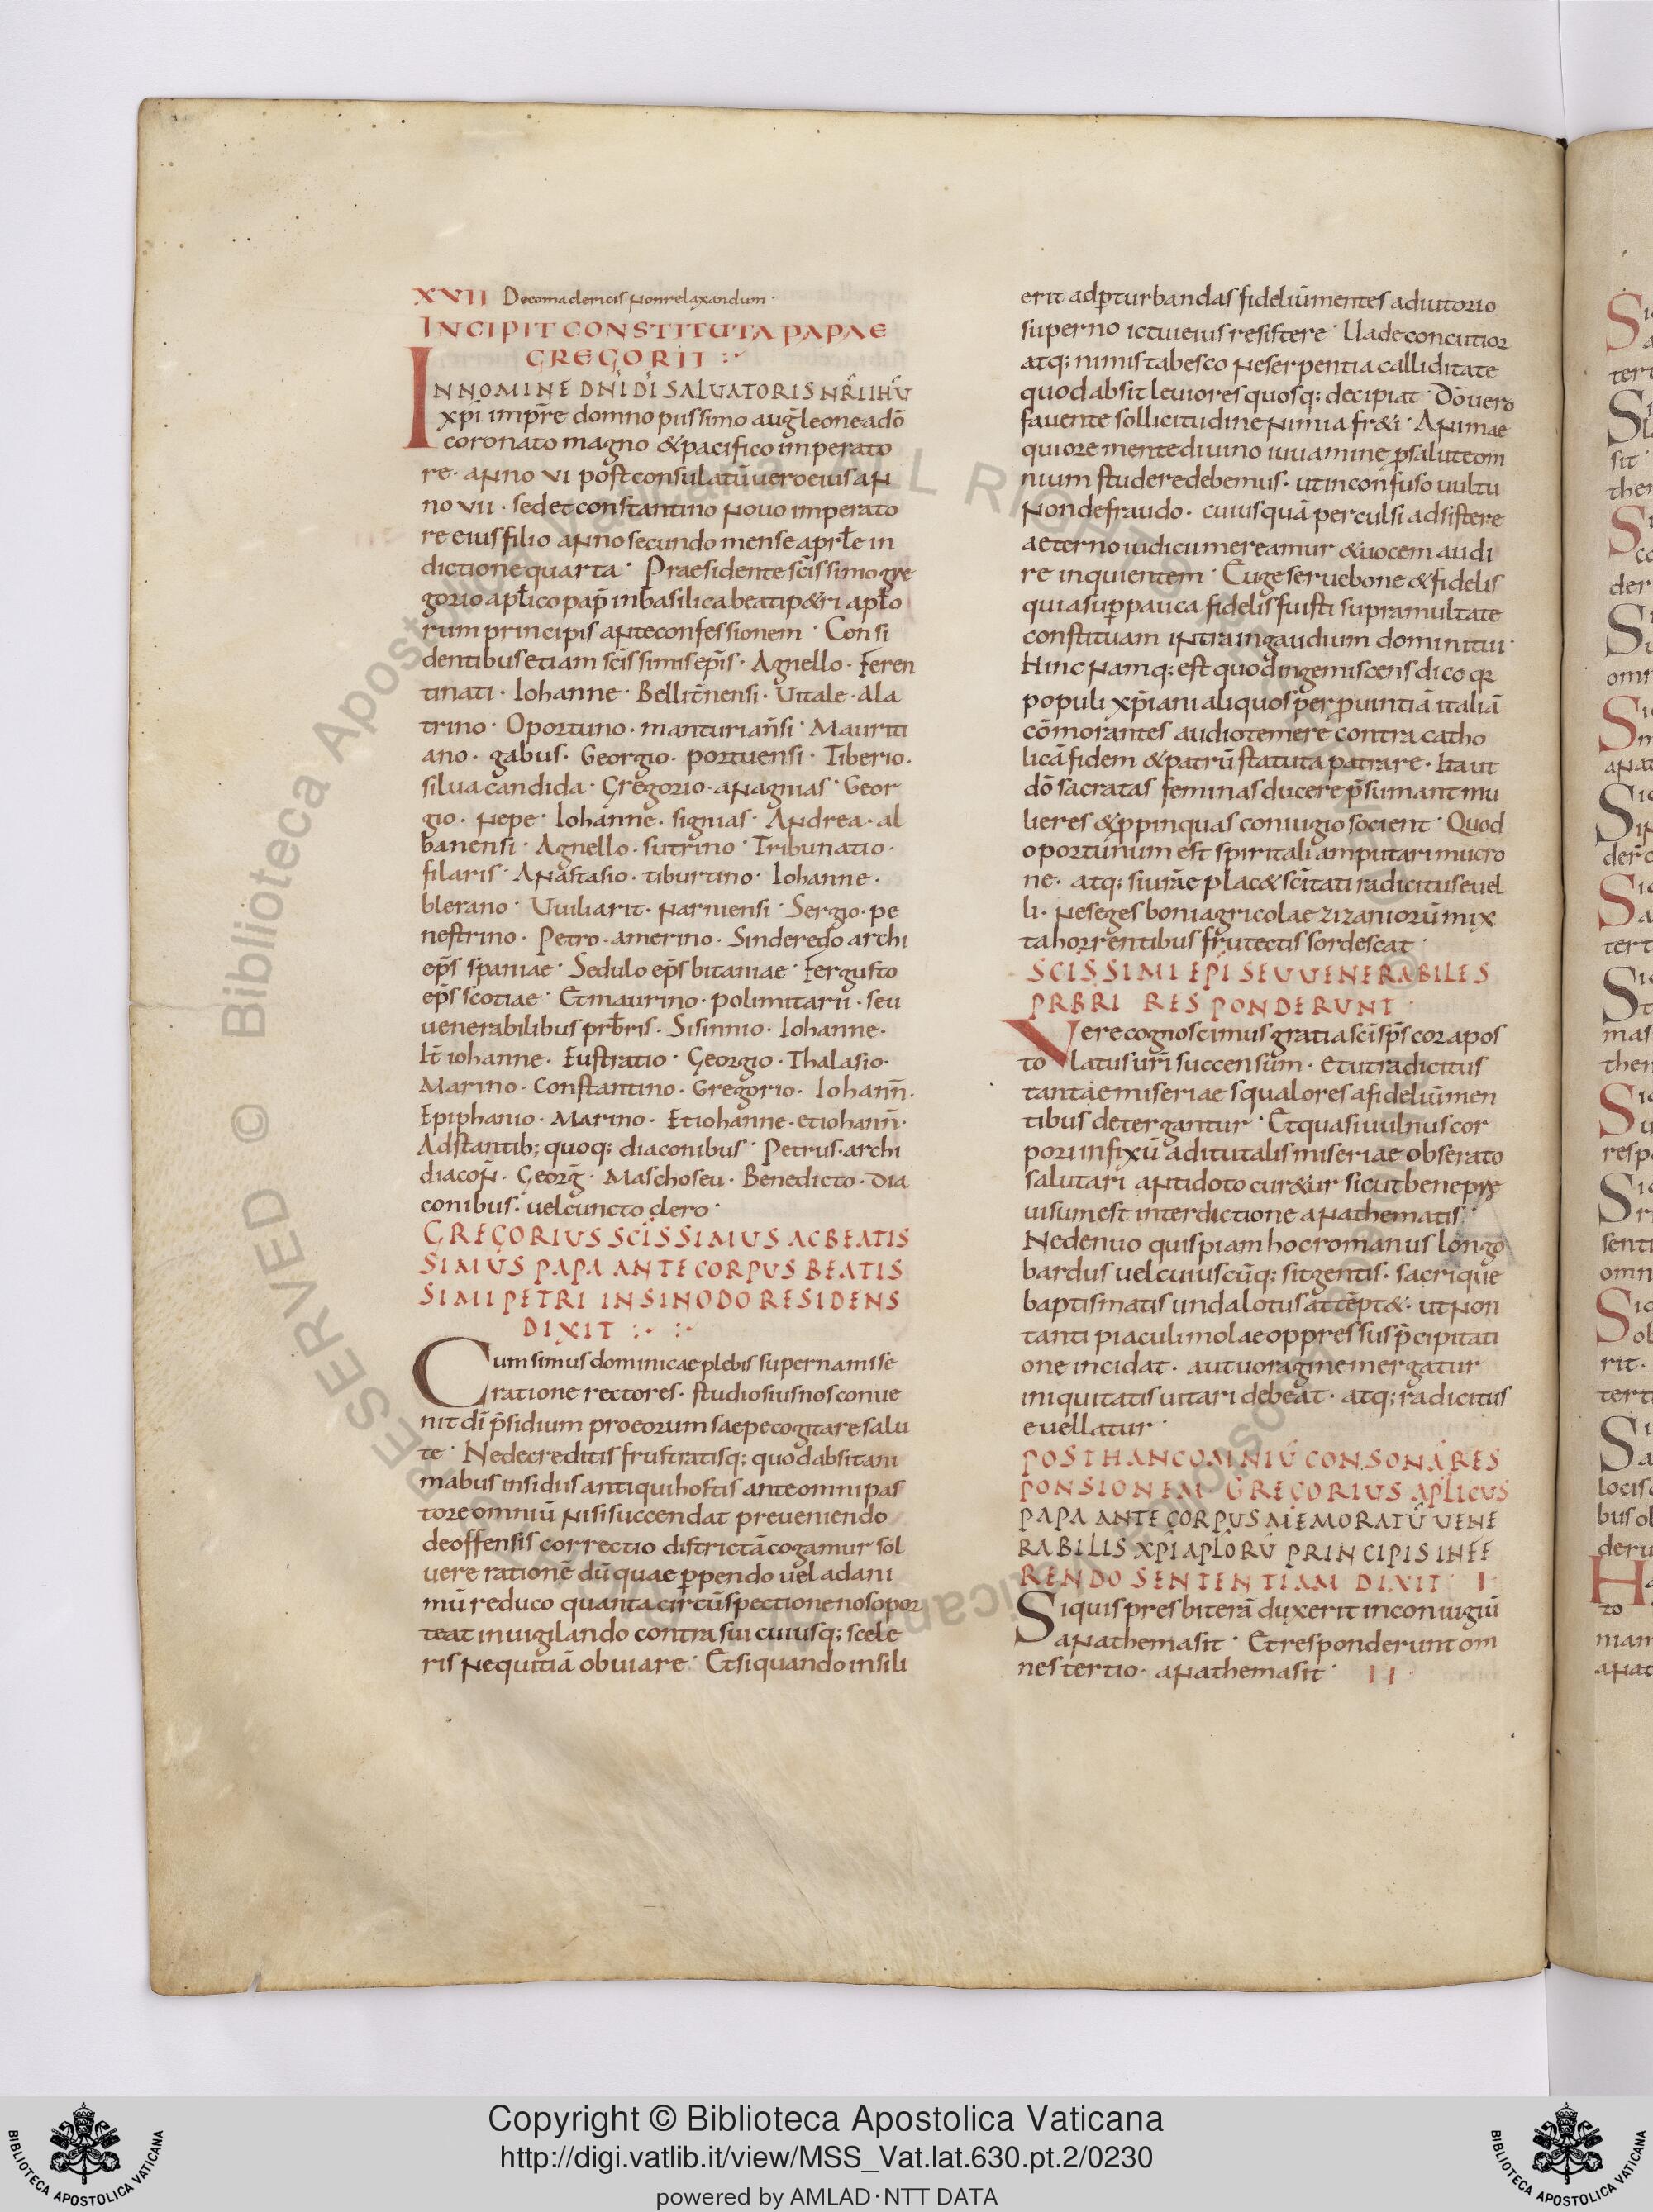 XVII De coma clericis non relaxandum ·
INCIPIT CONSTITUTA PAPAE
GREGORII :·
IN NOMINE DN̄I DĪ SALUATORIS NR̄I IHŪ
xp̄i imp̄re domno piissimo aug̅ leone a dō
coronato magno & pacifico imperato
re · anno VI post consulatū uero eius an
no VII · sed et constantino nouo imperato
re eius filio anno secundo mense apr̄le in
dictione quarta · Praesidente sc̄issimo gre
gorio apl̄ico pap̄ in basilica beati p&ri apl̄o
rum principis ante confessionem · Consi
dentibus etiam sc̄issimis ep̄is · Agnello · Feren
tinati · Iohanne · Bellitn̄ensi · Uitale · ala
trino · Oportuno · manturian̄si · Mauriti
ano · gabus · Georgio · portuensi · Tiberio ·
silua candida · Gregorio · anagnias · Geor
gio · nepe · Iohanne · signias · Andrea · al
banensi · Agnello · sutrino · Tribunatio ·
filaris · Anastasio · tiburtino · Iohanne ·
blerano · Uuiliarit · narniensi · Sergio · pe
nestrino · Petro · amerino · Sinderedo archi
ep̄s spaniae · Sedulo ep̄s bitaniae · Fergusto
ep̄s scotiae · Et maurino · polimitarii · seu
uenerabilibus prb̄ris · Sisinnio · Iohanne ·
It̄ iohanne · Eustratio · Georgio · Thalasio ·
Marino · Constantino · Gregorio · Iohann̄ ·
Epiphanio · Marino · Et iohanne · et iohann̄ ·
Adstantib; quoq; diaconibus · Petrus · archi
diacon̄ · Georg̅ · Moscho seu · Benedicto · dia
conibus · uel cuncto clero ·
GREGORIUS SC̄ISSIMUS AC BEATIS
SIMUS PAPA ANTE CORPUS BEATIS
SIMI PETRI IN SINODO RESIDENS
DIXIT :· :·
Cum simus dominicae plebis superna mise
ratione rectores · studiosius nos conue
nit dī p̄sidium pro eorum saepe cogitare salu
te · Ne decreditis frustratisq; quod absit ani
mabus insidiis antiqui hostis ante omni pas
tore omniū nisi succendat preueniendo
de offensis correctio districtā cogamur sol
uere rationē dū quae ꝑpendo uel ad ani
mū reduco quanta circūspectione nos opor
teat inuigilando contra sui cuiusq; scele
ris nequitiā obuiare · Et si quando insili
erit ad ꝑturbandas fideliū mentes adiutorio
superno ictui eius resistere · Uade concutior
atq; nimis tabesco ne serpentia calliditate
quod absit leuiores quosq; decipiat · Dō uero
fauente sollicitudine nimia fr&i · Animae
quiore mente diuino iuuamine ꝑ salute om
nium studere debemus · ut in confuso uultu
non defraudo · cuiusquā perculsi adsistere
aeterno iudicii mereamur & uocem audi
re inquientem · Euge serue bone & fidelis
quia suꝑ pauca fidelis fuisti supra multa te
constituam intra in gaudium domini tui ·
Hinc namq; est quod ingemiscens dico qꝛ
populi xp̄iani aliquos per ꝓuintiā italiā
cōmorantes audio temere contra catho
licā fidem & patrū statuta patrare · Ita ut
dō sacratas feminas ducere p̄sumant mu
lieres & ꝓpinquas coniugio socient · Quod
oportunum est spiritali amputari mucro
ne · atq; si urāe plac& sc̄itati radicitus euel
li · ne seges boni agricolae zizaniorū mix
ta horrentibus frutectis sordescat ·
SC̄ISSIMI EP̄I SEU UENERABILES
PRB̄RI RESPONDERUNT ·
Uere cognoscimus gratia sc̄i sp̄s cor apos
tolatus ur̄i succensum · et ut radicitus
tantae miseriae squalores a fideliū men
tibus detergantur · Et quasi uulnus cor
pori infixū aditu talis miseriae obserato
salutari antidoto cur&ur sicut bene pre
uisum est interdictione anathematis ·
Ne denuo quispiam hoc romanus longo
bardus uel cuiuscūq; sit gentis · sacrique
baptismatis unda lotus attēpt& · ut non
tanti piaculi mola e oppressus p̄cipitati
one incidat · aut uoragine mergatur
iniquitatis uitari debeat · atq; radicitus
euellatur ·
POST HANC OMNIŪ CONSONĀ RES
PONSIONEM GREGORIUS APL̄ICUS
PAPA ANTE CORPUS MEMORATŪ UENE
RABILIS XP̄I APL̄ORŪ PRINCIPIS INFE
RENDO SENTENTIAM DIXIT · I ·
Si quis presbiterā duxerit in coniugiū
anathema sit · Et responderunt om
nes tertio · anathema sit · II ·
Copyright © Biblioteca Apostolica Vaticana
http://digi.vatlib.it/view/MSS_Vat.lat.630.pt.2/0230
powered by AMLAD·NTT DATA
BIBLIOTECA APOSTOLICA VATICANA
BIBLIOTECA APOSTOLICA VATICANA